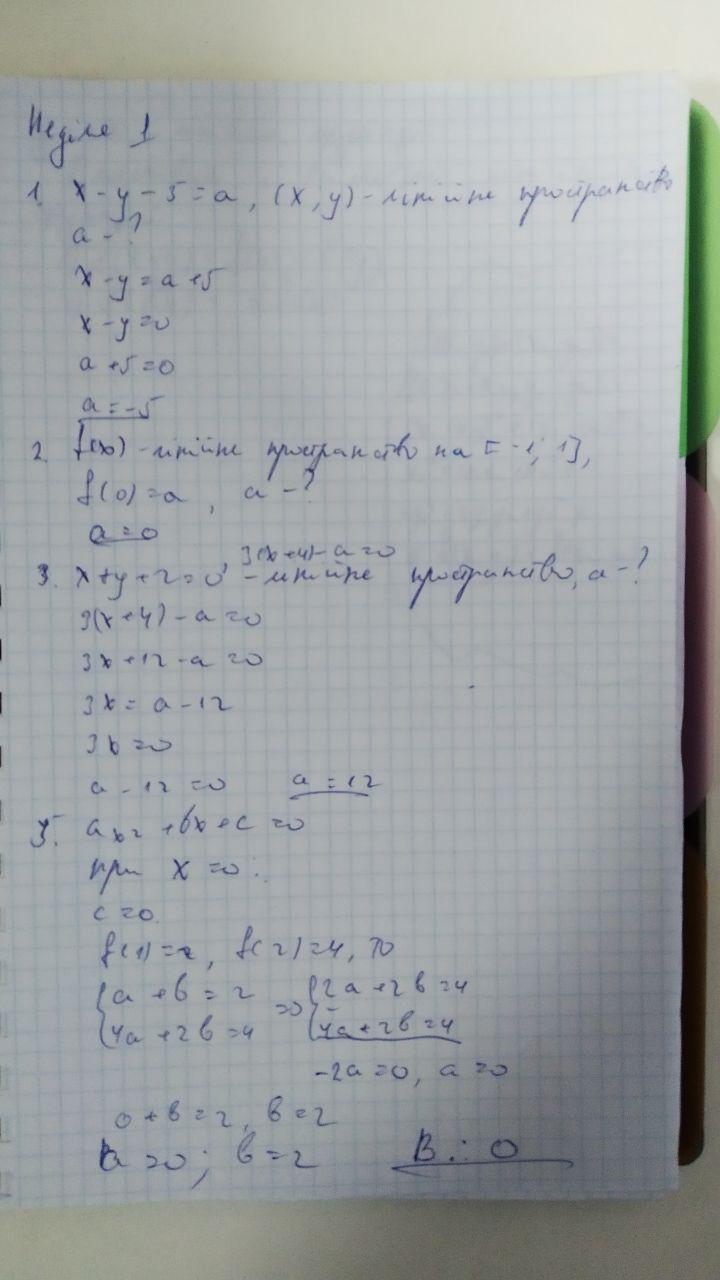 Неділя 1
1. x - y - 5 = a, (x, y) - лінійне пространство
a - ?
x - y = a + 5
x - y = 0
a + 5 = 0
a = -5
2. f(x) - лінійне пространство на [-1; 1],
f(0) = a, a - ?
a = 0
3. x + y + z = 0, 3(x+4) - a = 0 - лінійне пространство, a - ?
3(x+4) - a = 0
3x + 12 - a = 0
3x = a - 12
3x = 0
a - 12 = 0 a = 12
5. ax2 + bx + c = 0
при x = 0:
c = 0
f(1) = 2, f(2) = 4, то
{a + b = 2 => {2a + 2b = 4
{4a + 2b = 4 {4a + 2b = 4
-2a = 0, a = 0
0 + b = 2, b = 2
a = 0; b = 2 В.: 0